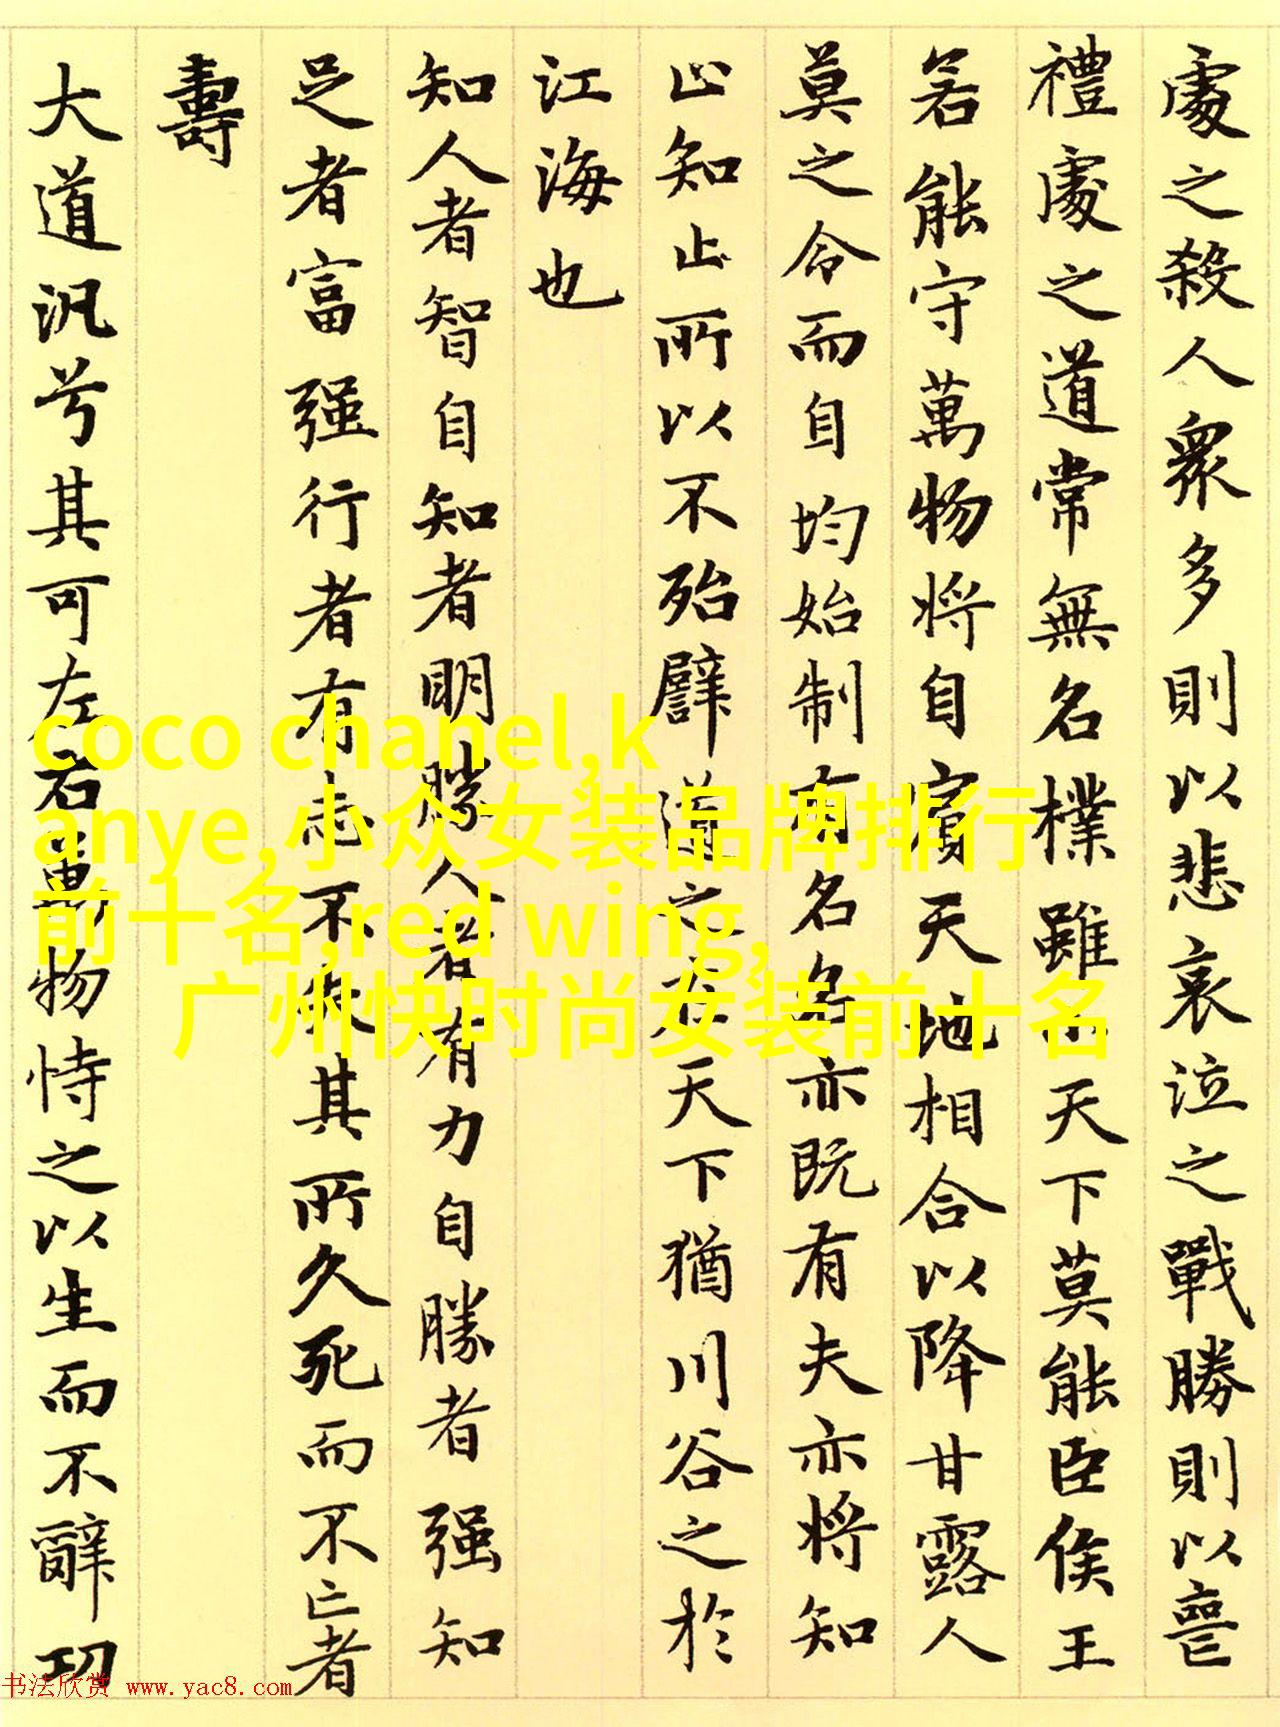 處之殺人衆多則以悲哀泣之戰勝則以喪
禮處之道常無名樸雖小天下莫能臣侯王
若能守萬物將自賓天地相合以降甘露人
莫之令而自均始制有名名亦既有夫亦將知
止知止所以不殆譬道之在天下猶川谷之於
江海也
知人者智自知者明勝人者有力自勝者强知
足者富强行者有志不失其所久死而不亡者
壽
大道汎兮其可左右萬物恃之以生而不辭功
coco chanel,k
anye,小众女装品牌排行
前十名,red wing,
广州快时尚女装前十名
书法欣赏 www.yac8.com